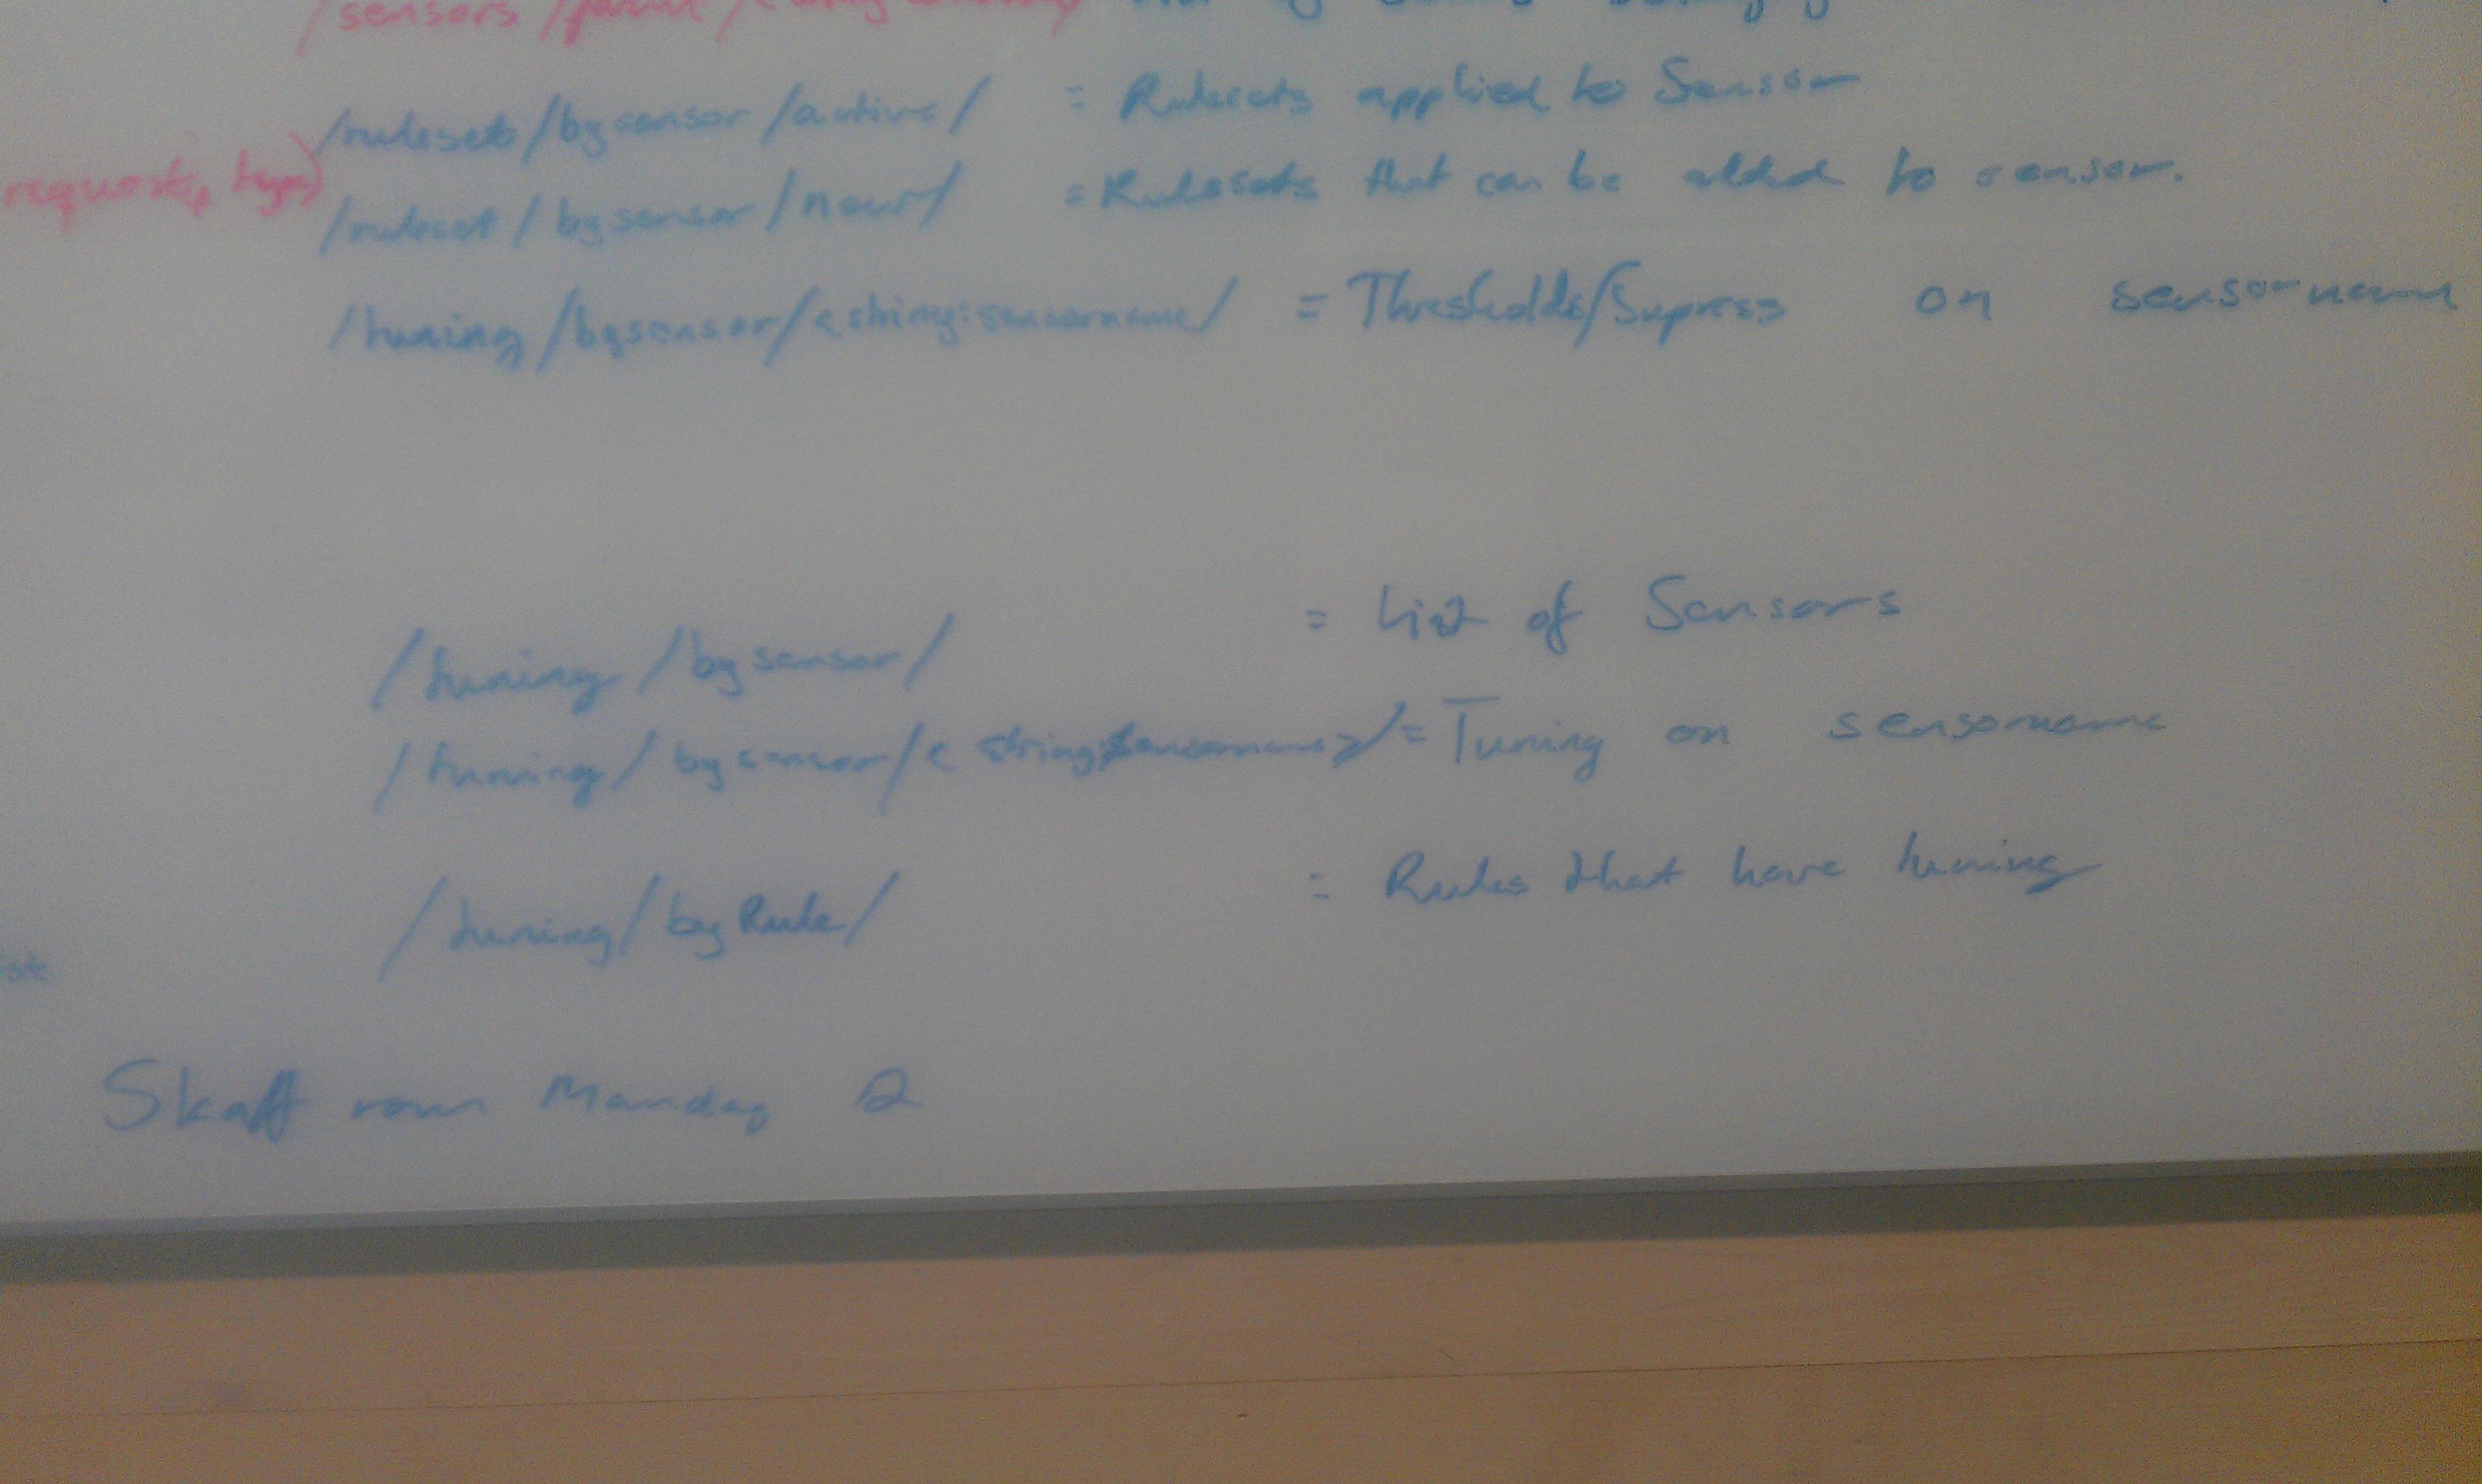 /sensors /
/rulesets/bysensor/active/ = Rulesets applied to Sensor
request, type)
/ruleset/bysensor/new/ = Rulesets that can be added to sensor.
/tuning/bysensor/<string:sensorname/ = Thresholds/Supress on sensorname
/tuning/bysensor/ = List of Sensors
/tuning/bysensor/<string:sensorname>/ = Tuning on sensorname
/tuning/byRule/ = Rules that have tuning
Skaff rom Mandag 2